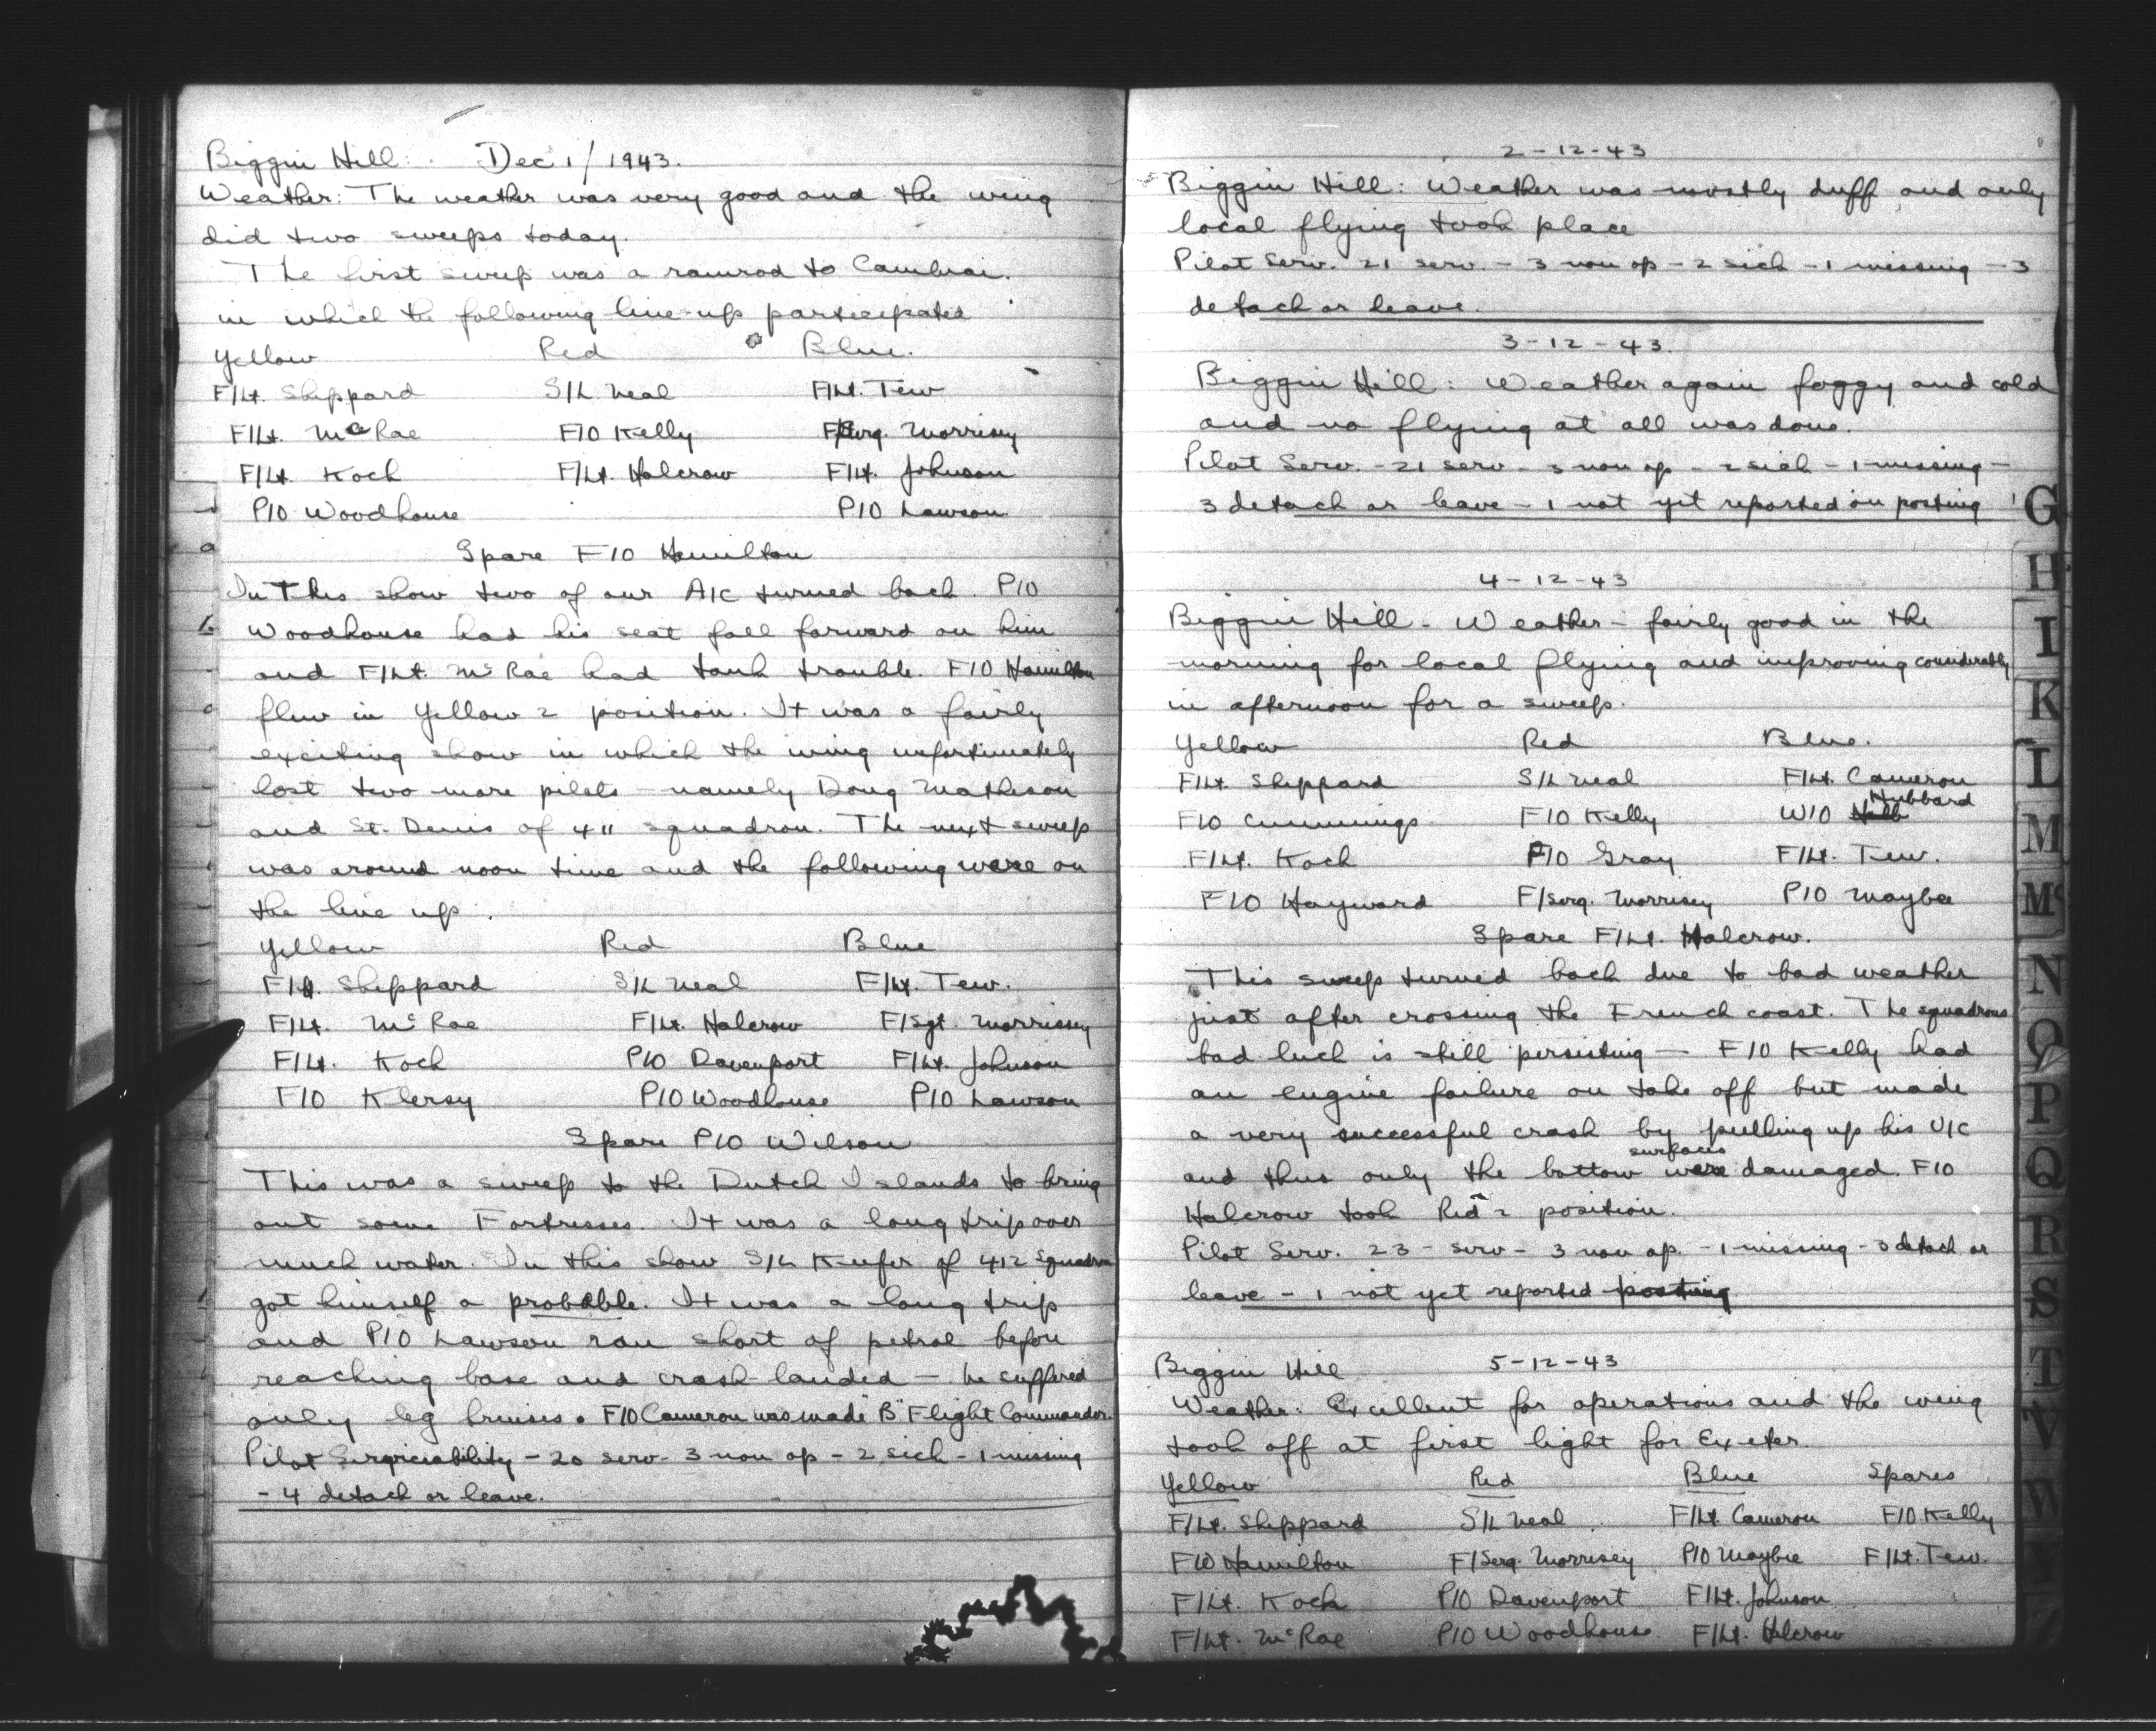 Biggin Hill: Dec 1/1943.
Weather: The weather was very good and the wing
did two sweeps today.
The first sweep was a ramrod to Cambrai.
in which the following line-up participated
Yellow Red Blue.
F/Lt. Sheppard S/L Neal F/Lt. Tew
F/Lt. McRae F/O Kelly F/Serg. Morrisey
F/Lt. Koch F/Lt. Halcrow F/Lt. Johnson
P/O Woodhouse P/O Lawson
Spare F/O Hamilton
In this show two of our A/C turned back. P/O
Woodhouse had his seat fall forward on him
and F/Lt. McRae had tank trouble. F/O Hamilton
flew in Yellow 2 position. It was a fairly
exciting show in which the wing unfortunately
lost two more pilots - namely Doug Matheson
and St. Denis of 411 squadron. The next sweep
was around noon time and the following were on
the line up.
Yellow Red Blue
F/Lt. Sheppard S/L Neal F/Lt. Tew.
F/Lt. McRae F/Lt. Halcrow F/Sgt. Morrissey
F/Lt. Koch P/O Davenport F/Lt. Johnson
F/O Klersy P/O Woodhouse P/O Lawson
Spare P/O Wilson
This was a sweep to the Dutch Islands to bring
out some Fortresses. It was a long trip over
much water. In this show S/L Keefer of 412 Squadron
got himself a probable. It was a long trip
and P/O Lawson ran short of petrol before
reaching base and crash landed - he suffered
only leg bruises. F/O Cameron was made "B" Flight Commander.
Pilot Serviceability - 20 serv - 3 non op - 2 sick - 1 missing
- 4 detach or leave.
2-12-43
Biggin Hill: Weather was mostly duff and only
local flying took place
Pilot Serv. 21 serv. - 3 non op - 2 sick - 1 missing - 3
detach or leave.
3-12-43.
Biggin Hill: Weather again foggy and cold
and no flying at all was done.
Pilot Serv. - 21 serv - 3 non op - 2 sick - 1 missing -
3 detach or leave - 1 not yet reported on posting
4-12-43
Biggin Hill - Weather - fairly good in the
morning for local flying and improving considerably
in afternoon for a sweep.
Yellow Red Blue.
F/Lt. Sheppard S/L Neal F/Lt. Cameron
F/O Cummings F/O Kelly W/O Hubbard
F/Lt. Koch P/O Gray F/Lt. Tew.
F/O Hayward F/Serg. Morrisey P/O Maybee
Spare F/Lt. Halcrow.
This sweep turned back due to bad weather
just after crossing the French coast. The squadrons
bad luck is still persisting - F/O Kelly had
an engine failure on take off but made
a very successful crash by pulling up his U/C
and thus only the bottom surfaces were damaged. F/O
Halcrow took Red 2 position.
Pilot Serv. 23 - serv - 3 non op. - 1 missing - 3 detach or
leave - 1 not yet reported posting
Biggin Hill 5-12-43
Weather: Excellent for operations and the wing
took off at first light for Exeter.
Yellow Red Blue Spares
F/Lt. Sheppard S/L Neal F/Lt. Cameron F/O Kelly
F/O Hamilton F/Serg. Morrisey P/O Maybee F/Lt. Tew.
F/Lt. Koch P/O Davenport F/Lt. Johnson
F/Lt. McRae P/O Woodhouse F/Lt. Halcrow
G
H
I
K
L
M
Mc
N
O
P
Q
R
S
T
V
W